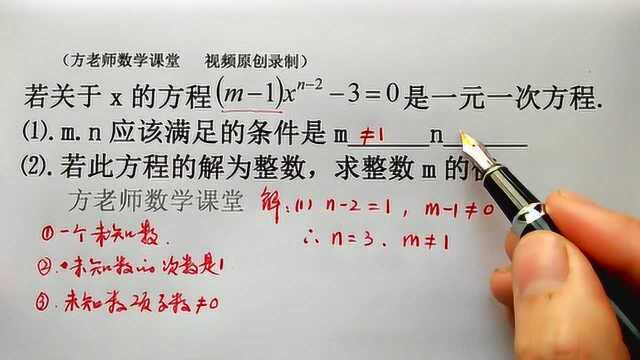 （方老师数学课堂 视频原创录制）
若关于 x 的方程(m−1)xⁿ⁻²−3=0是一元一次方程.
⑴. m. n 应该满足的条件是 m ≠1 n
⑵. 若此方程的解为整数，求整数 m 的
方老师数学课堂 解:(1) n-2=1, m-1≠0
①一个未知数. ∴ n=3. m≠1
②.未知数的次数是1
③.未知数项系数≠0